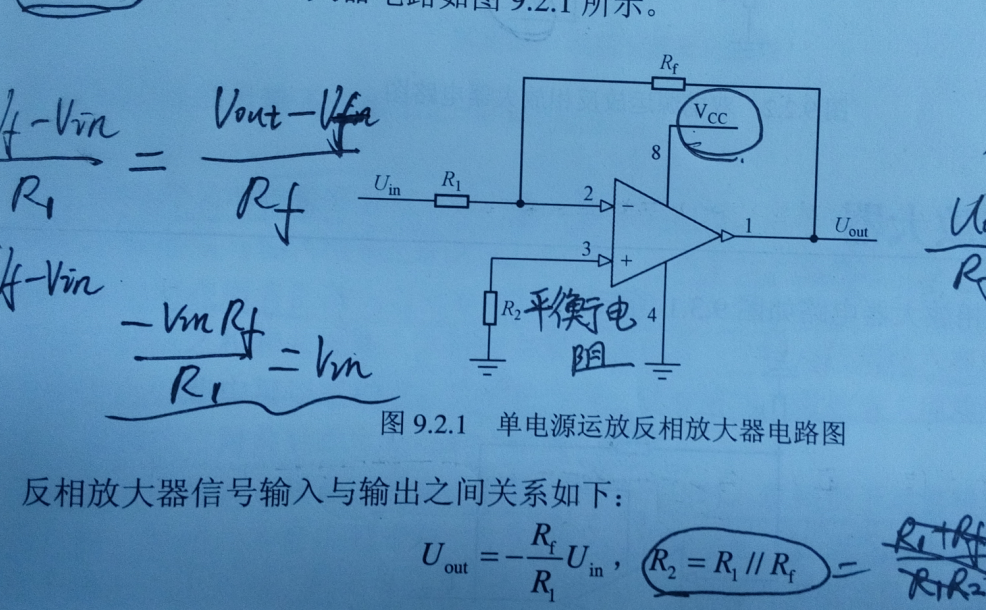 大器电路如图 9.2.1 所示。
f-Vin
R1
=
Vout-V
Rf
f-Vin
-Vin Rf
R1
= Vin
Rf
VCC
8
Uin
R1
2
−
1
Uout
3
+
R2
平衡电
阻
4
图 9.2.1 单电源运放反相放大器电路图
反相放大器信号输入与输出之间关系如下：
Uout = −Rf/R1 Uin， R2 = R1 // Rf =
R1+Rf
R1R2